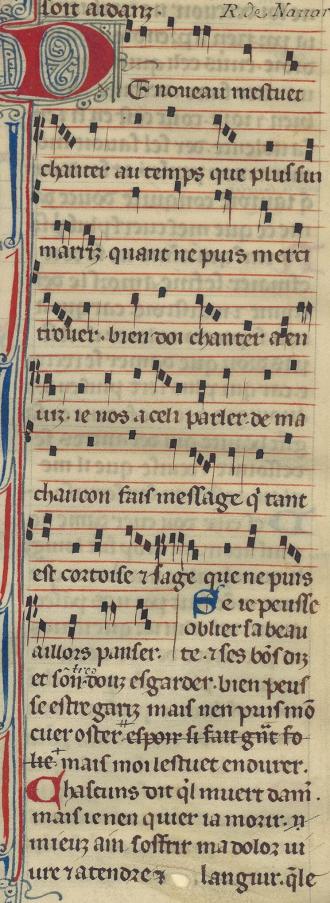 soit aidanz. R. de Navar
De noveau mestuet
chanter au temps que plus sui
marriz quant ne puis merci
trouer. bien doi chanter a en
uiz. ie nos a celi parler. de ma
chancon fais message q̃ tant
est cortoise ⁊ sage que ne puis
aillors panser. Se ie peusse
oblier sa beau
te. ⁊ ses bõs diz
et son tres douz esgarder. bien peus
se estre gariz mais nen puis mõ
cuer oster espoir si fait gñt fo
lie mais moi lestuet endurer.
Chascuns dit q̃l muert dam̃.
mais ie nen quier ia morir.
mieuz ain soffrir ma dolor ui
ure ⁊ atendre ⁊ languir. q̃le